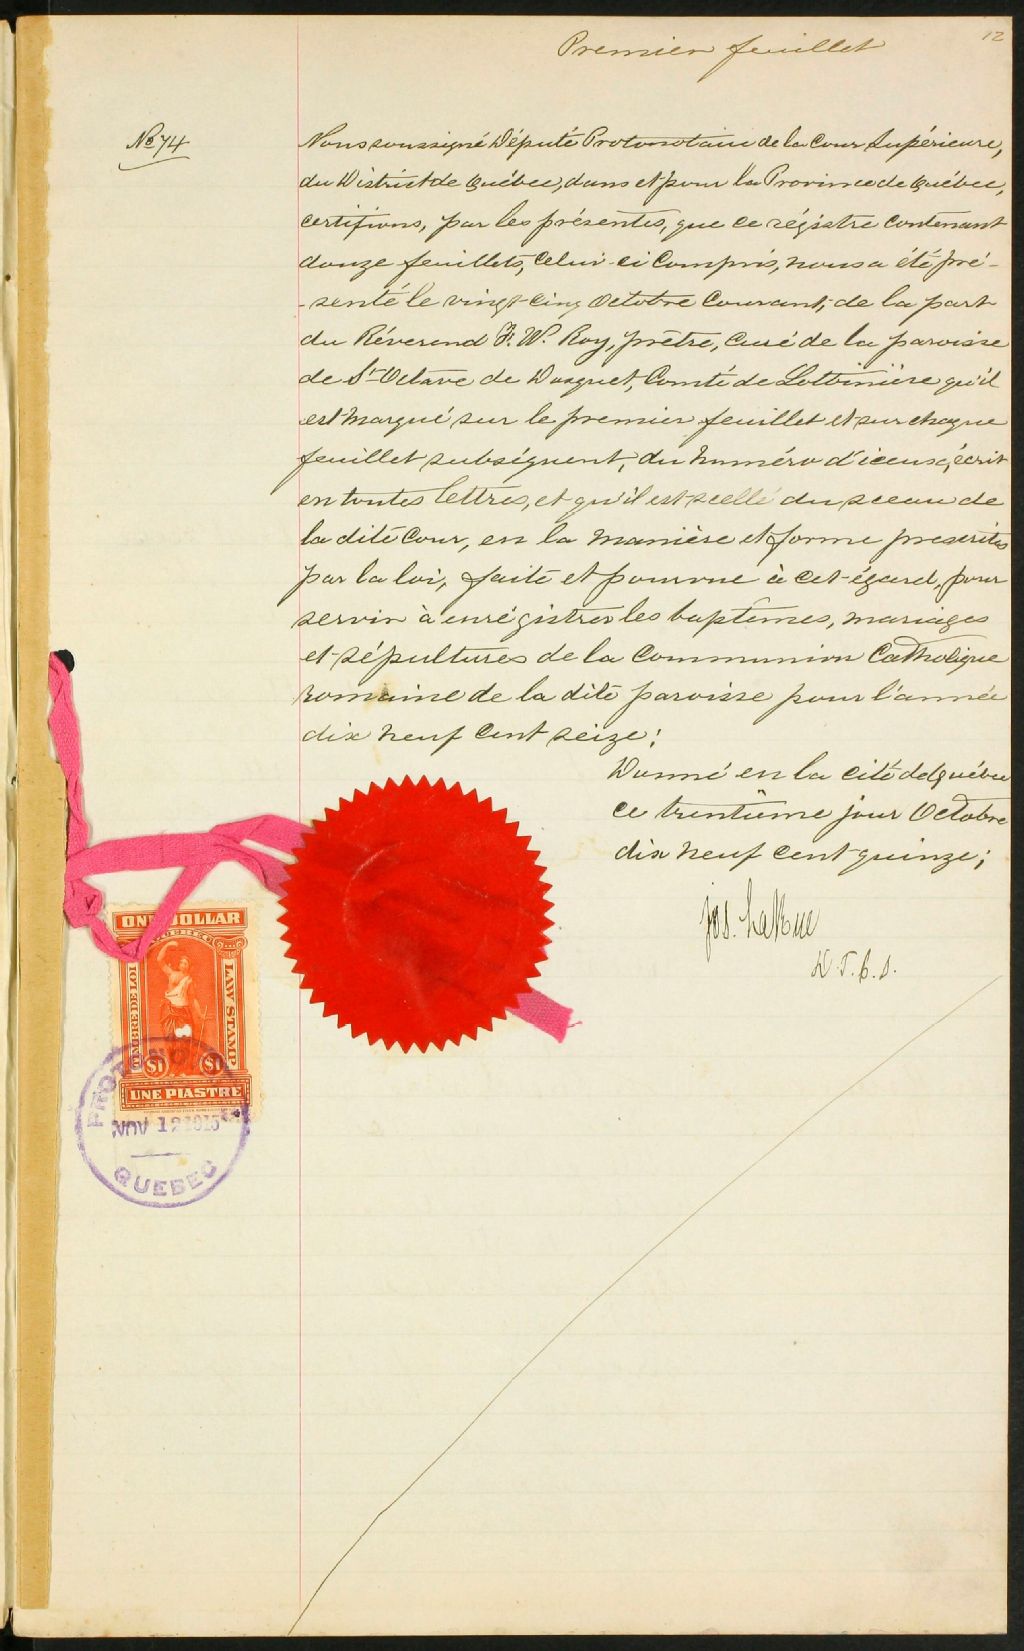 Premier feuillet
12
No 74
Nous soussigné Député Protonotaire de la Cour Supérieure,
du District de Québec, dans et pour la Province de Québec,
certifions, par les présentes, que ce régistre contenant
douze feuillets, celui-ci compris, nous a été pré-
-senté le vingt-cinq Octobre courant, de la part
du Révérend F. W. Roy, prêtre, curé de la paroisse
de St-Octave de Dosquet, Comté de Lotbinière qu'il
est marqué sur le premier feuillet et sur chaque
feuillet subséquent, du numéro d'iceux, écrit
en toutes lettres, et qu'il est scellé du sceau de
la dite Cour, en la manière et forme prescrites
par la loi, faite et pourvue à cet égard, pour
servir à enrégistrer les baptêmes, mariages
et sépultures de la Communion Catholique
romaine de la dite paroisse pour l'année
dix neuf cent seize;
Donné en la cité de Québec
ce trentième jour Octobre
dix neuf cent quinze;
Jos. LaRue
D.P.C.S.
ONE DOLLAR
QUEBEC
TIMBRE DE LOI
LAW STAMP
$1 $1
UNE PIASTRE
NOV 12 1915
QUEBEC